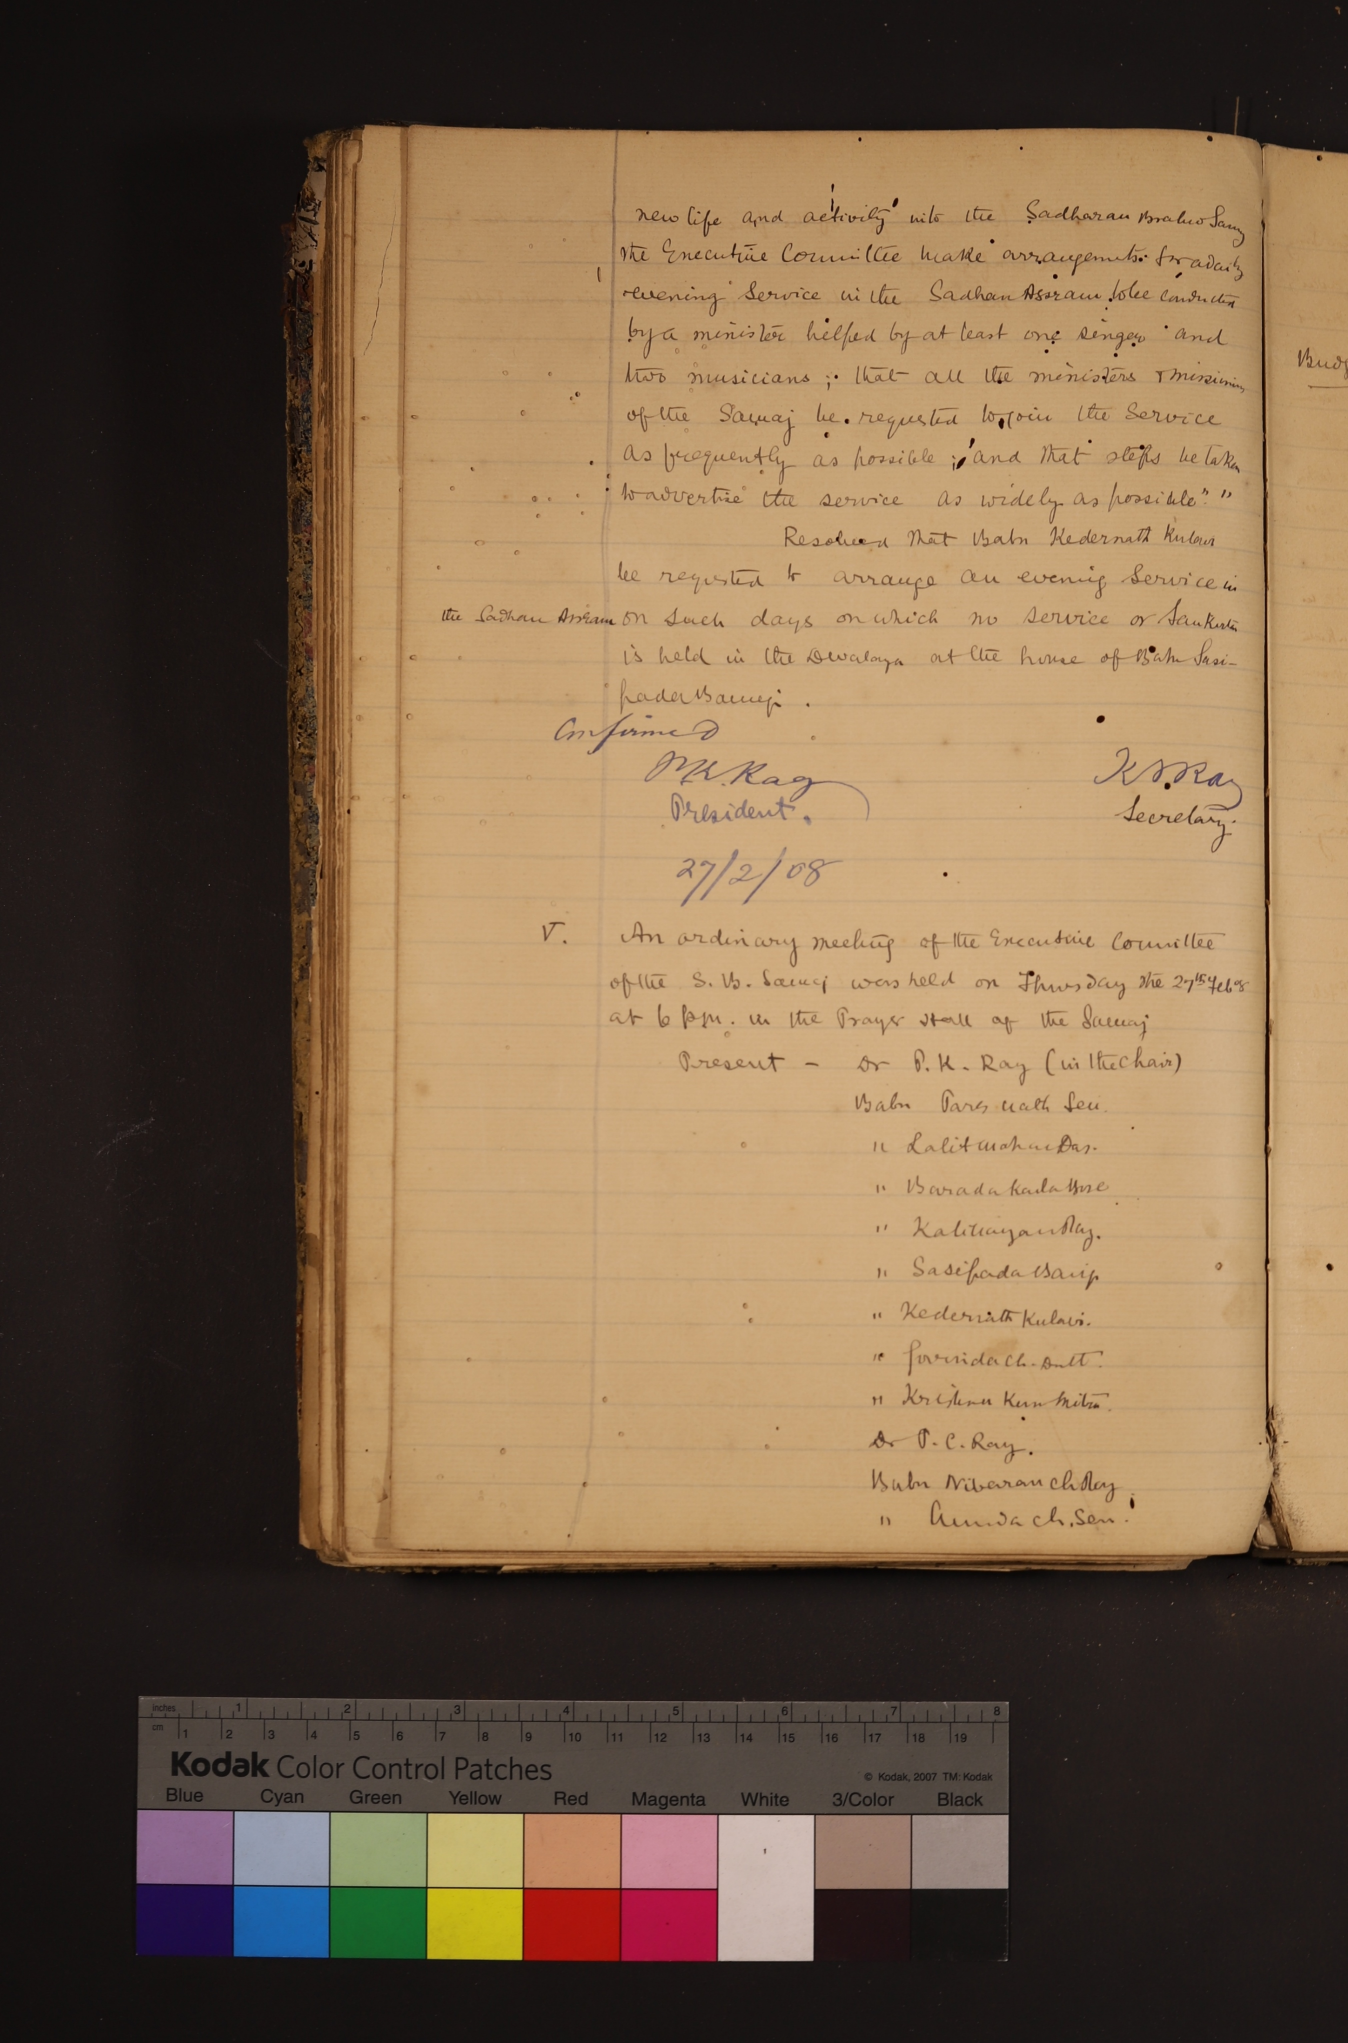 new life and activity into the Sadharan Brahmo Samaj
the Executive Committee make arrangements for a daily
evening Service in the Sadhan Assram to be conducted
by a minister helped by at least one singer and
two musicians ; that all the ministers & missionaries
of the Samaj be requested to join the Service
as frequently as possible ; and that steps be taken
to advertise the service as widely as possible." "
Resolved that Babu Kedernath Kulavi
be requested to arrange an evening Service in
the Sadhan Assram on such days on which no service or Sankirtan
is held in the Devalaya at the house of Babu Sasi-
pada Banerji.
Confirmed
P.K. Ray
President.
K.N. Ray
Secretary.
27/2/08
V. An ordinary meeting of the Executive Committee
of the S. B. Samaj was held on Thursday the 27th Feb 08
at 6 p.m. in the Prayer Hall of the Samaj
Present - Dr P. K. Ray (in the chair)
Babu Pares nath Sen.
" Lalit mohan Das.
" Barada Kanta Bose
" Kalinarayan Ray.
" Sasipada Banrji
" Kedernath Kulavi.
" Govinda ch. Dutt.
" Krishna Kumar Mitra.
Dr P. C. Ray.
Babu Nibaran ch Ray
" ch. Sen.
Budg
inches 1 2 3 4 5 6 7 8
cm 1 2 3 4 5 6 7 8 9 10 11 12 13 14 15 16 17 18 19
Kodak Color Control Patches
© Kodak, 2007 TM: Kodak
Blue Cyan Green Yellow Red Magenta White 3/Color Black